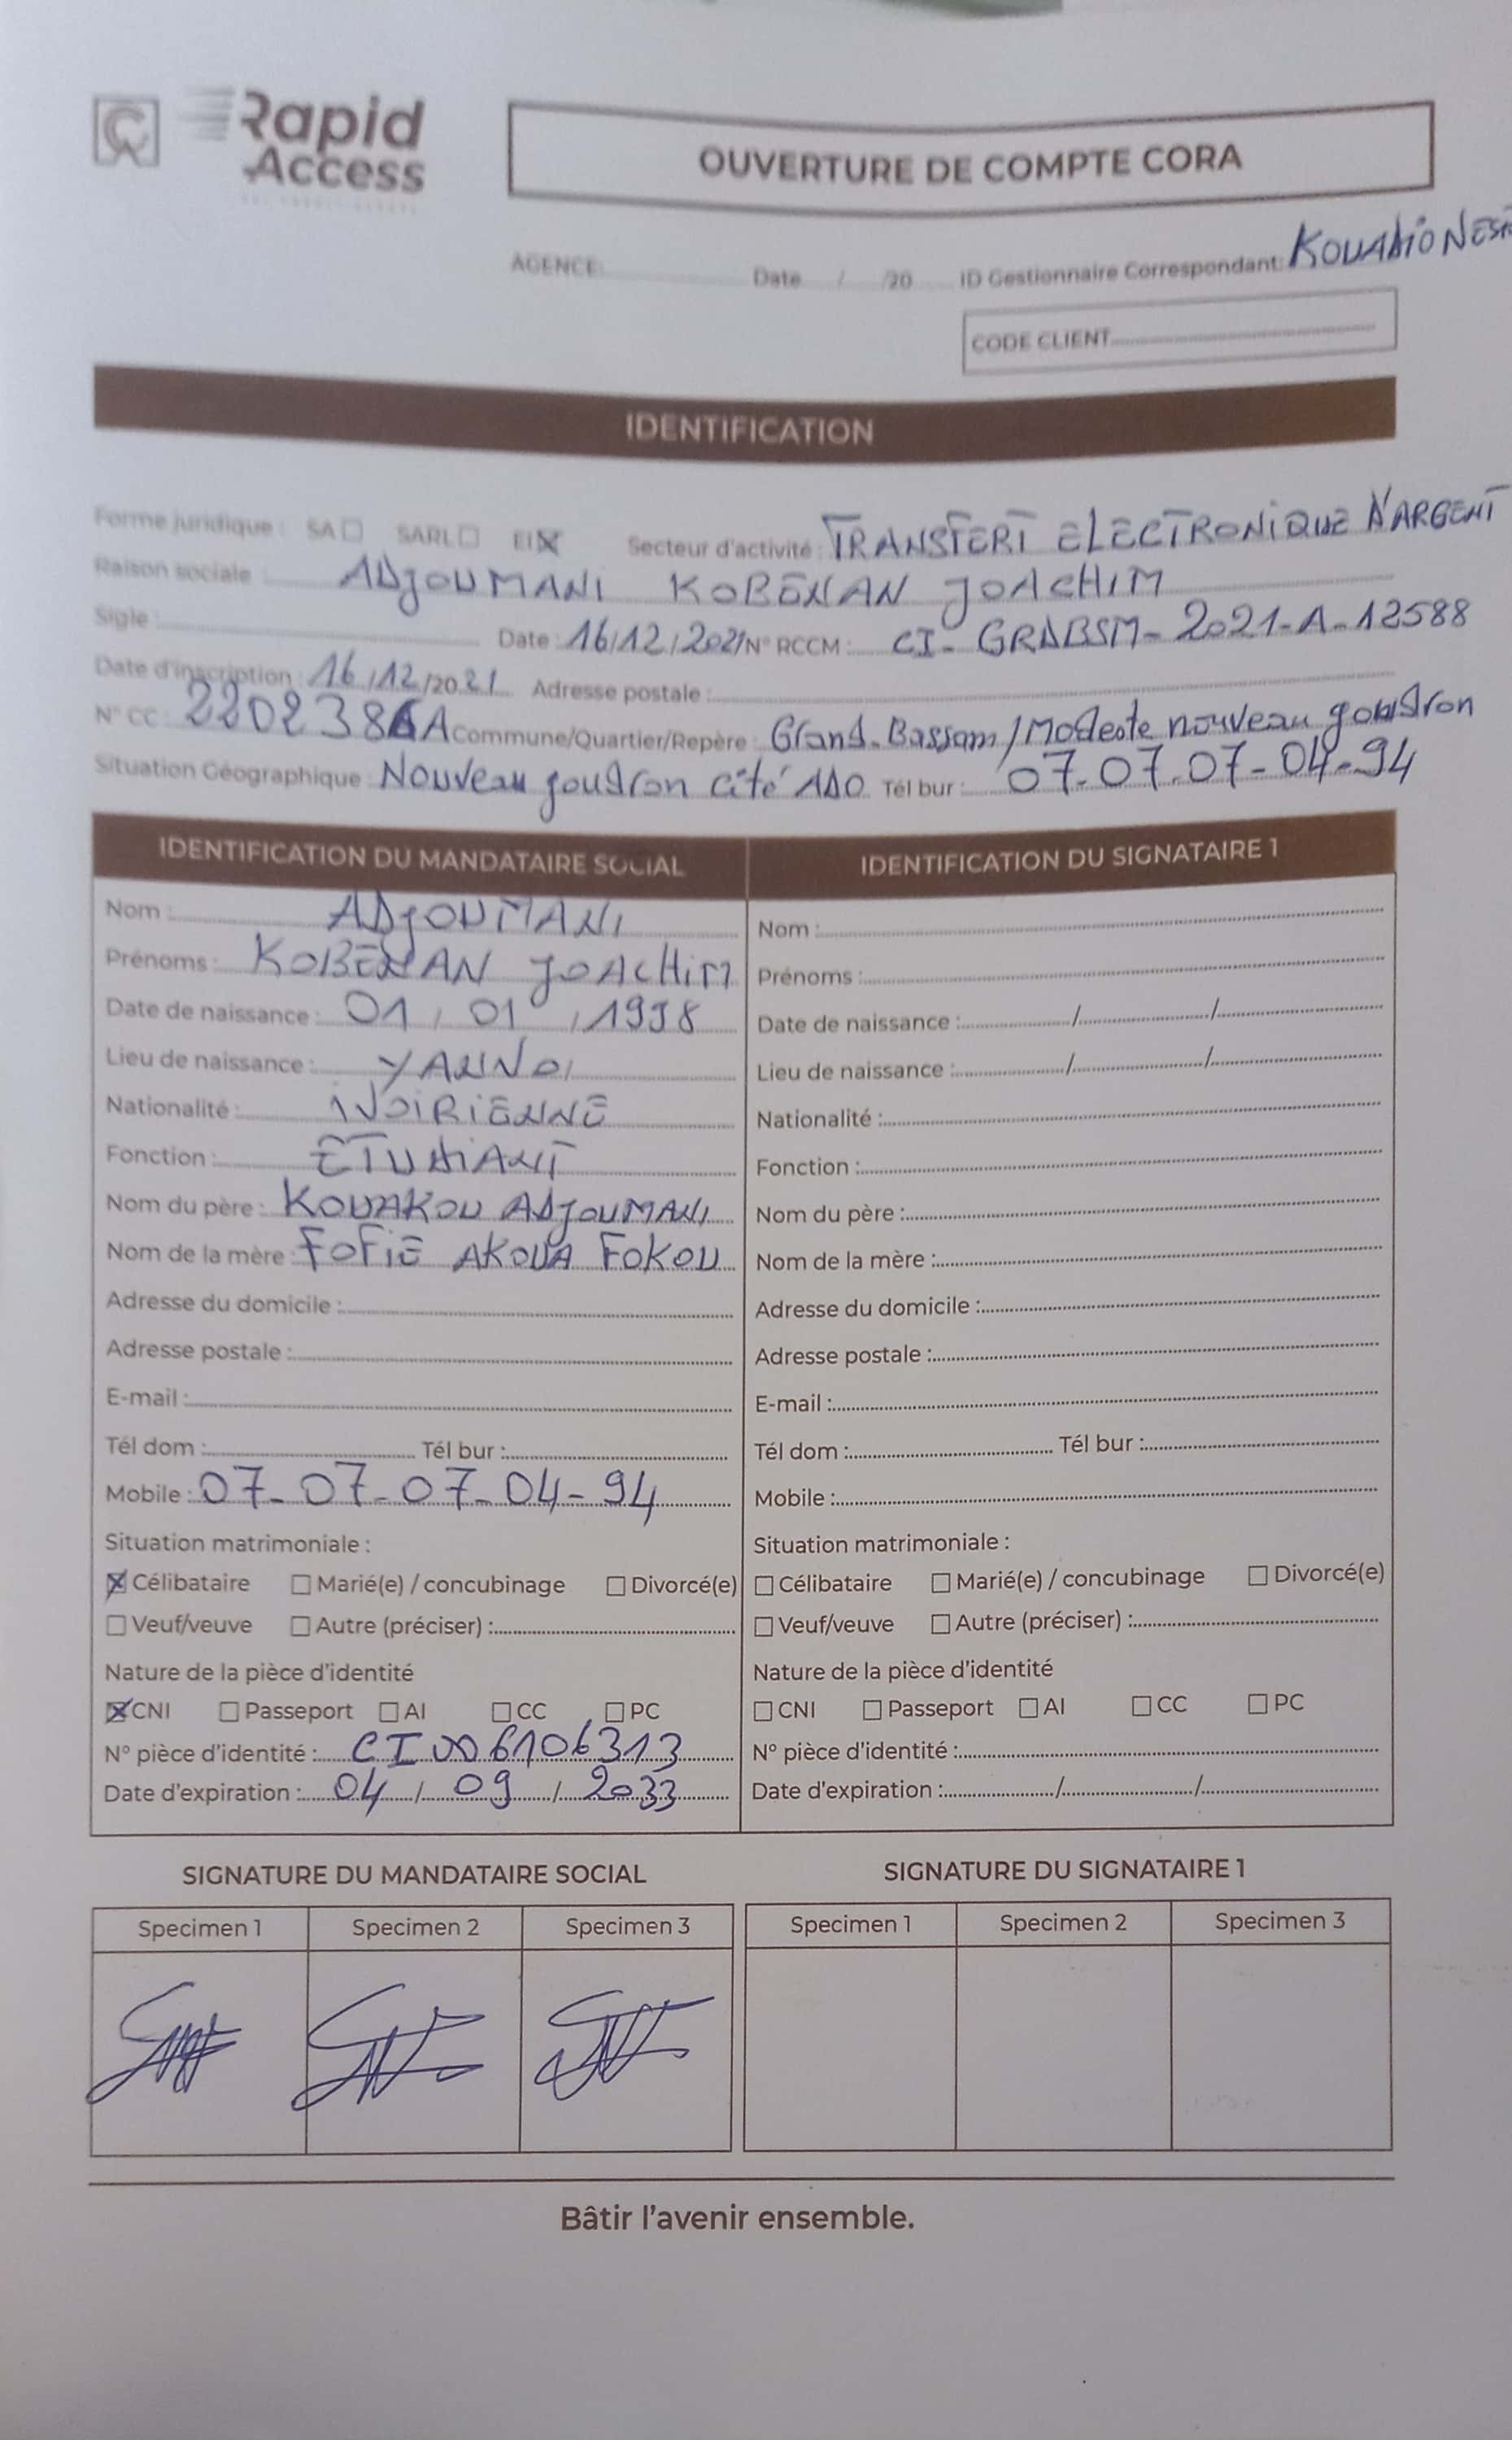 Rapid
Access
OUVERTURE DE COMPTE CORA
AGENCE: Date / /20 ID Gestionnaire Correspondant: KOUADIO
CODE CLIENT
IDENTIFICATION
Forme juridique : SA ☐ SARL ☐ EI ☒ Secteur d'activité : TRANSFERT ELECTRONIQUE D'ARGENT
Raison sociale : ADJOUMANI KOBENAN JOACHIM
Sigle : Date : 16/12/2021 N° RCCM : CI-GRDBSM-2021-A-12588
Date d'inscription : 16/12/2021 Adresse postale :
N° CC : Commune/Quartier/Repère : Grand-Bassam/Modeste nouveau goudron
Situation Géographique : Nouveau goudron cité ADO Tél bur : 07-07-07-04-94
IDENTIFICATION DU MANDATAIRE SOCIAL
Nom : ADJOUMANI
Prénoms : KOBENAN JOACHIM
Date de naissance : 01/01/1998
Lieu de naissance :
Nationalité : IVOIRIENNE
Fonction : ETUDIANT
Nom du père : KOUAKOU ADJOUMANI
Nom de la mère : FOFIE AKOUA FOKOU
Adresse du domicile :
Adresse postale :
E-mail :
Tél dom : Tél bur :
Mobile : 07-07-07-04-94
Situation matrimoniale :
☒ Célibataire ☐ Marié(e) / concubinage ☐ Divorcé(e)
☐ Veuf/veuve ☐ Autre (préciser) :
Nature de la pièce d'identité
☒ CNI ☐ Passeport ☐ AI ☐ CC ☐ PC
N° pièce d'identité : CI006106313
Date d'expiration : 04/09/2033
IDENTIFICATION DU SIGNATAIRE 1
Nom :
Prénoms :
Date de naissance : / /
Lieu de naissance : / /
Nationalité :
Fonction :
Nom du père :
Nom de la mère :
Adresse du domicile :
Adresse postale :
E-mail :
Tél dom : Tél bur :
Mobile :
Situation matrimoniale :
☐ Célibataire ☐ Marié(e) / concubinage ☐ Divorcé(e)
☐ Veuf/veuve ☐ Autre (préciser) :
Nature de la pièce d'identité
☐ CNI ☐ Passeport ☐ AI ☐ CC ☐ PC
N° pièce d'identité :
Date d'expiration : / /
SIGNATURE DU MANDATAIRE SOCIAL
Specimen 1 Specimen 2 Specimen 3
SIGNATURE DU SIGNATAIRE 1
Specimen 1 Specimen 2 Specimen 3
Bâtir l'avenir ensemble.